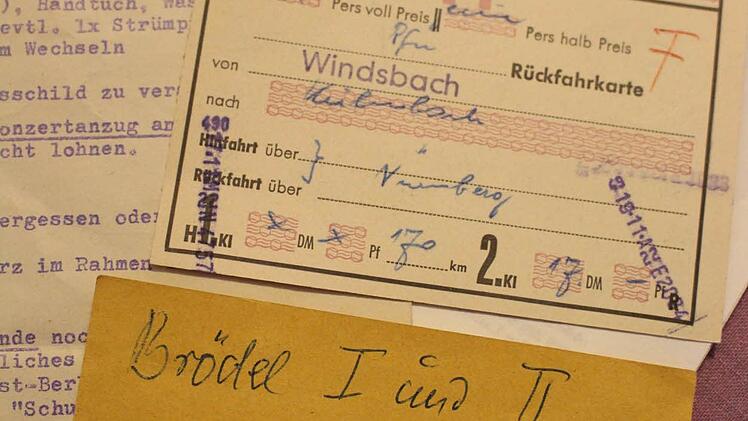 ), Handtuch, Was
evtl. 1x Strümp
m Wechseln
sschild zu ver
onzertanzug an
cht lohnen.
ergessen oder
rz im Rahmen
nde noc
liches
st-Ber
"Schu
Pers voll Preis ein Pers halb Preis F
Rückfahrkarte
von Windsbach
nach
490
Hinfahrt über }
Rückfahrt über Nürnberg
H1.Kl x DM x Pf 170 km 2.Kl 17 DM - Pf
Brödel I und II